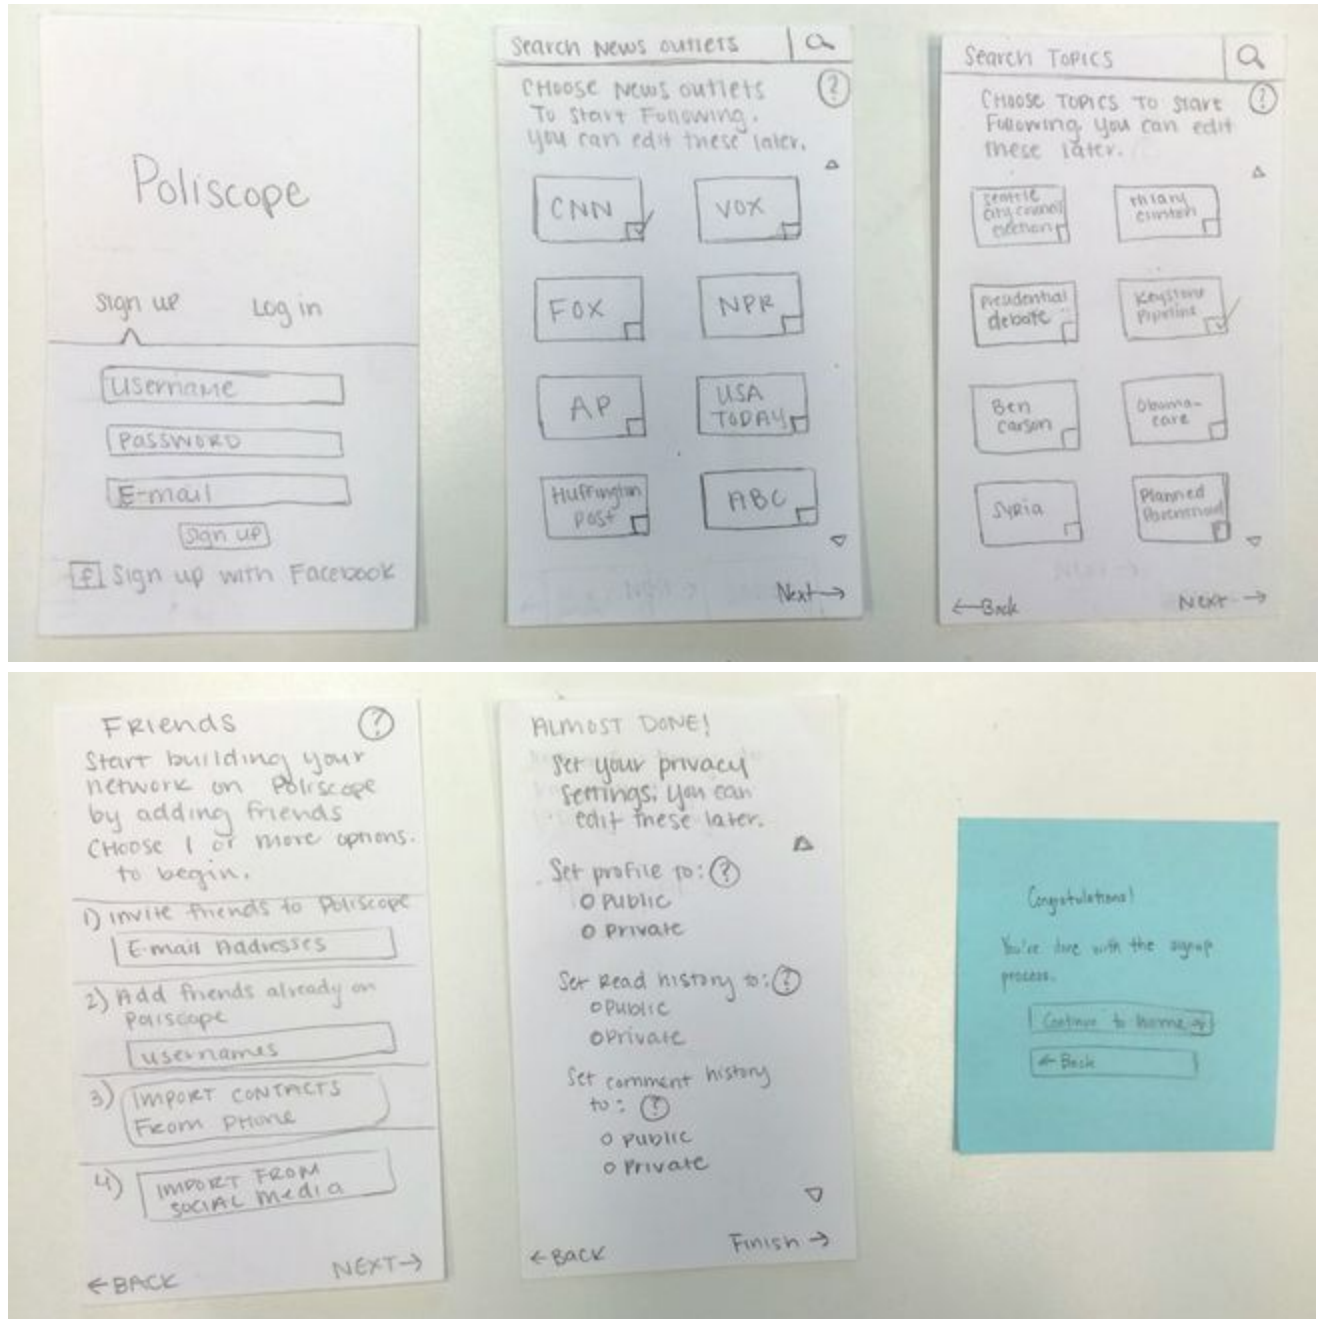 Poliscope
Sign up
Log in
Username
Password
E-mail
Sign up
f Sign up with Facebook
Search News outlets
Choose News outlets
To Start Following.
you can edit these later.
?
CNN
VOX
FOX
NPR
AP
USA
TODAY
Huffington
post
ABC
Next→
Search Topics
Choose Topics to start
Following you can edit
these later.
?
Seattle
city council
election
Hilary
Clinton
Presidential
debate
Keystone
Pipeline
Ben
carson
Obama-
care
Syria
Planned
Parenthood
←Back
Next →
Friends
?
Start building your
network on Poliscope
by adding friends
Choose 1 or more options.
to begin.
1) Invite friends to Poliscope
E-mail Addresses
2) Add friends already on
Poliscope
usernames
3) Import contacts
From phone
4) Import from
social media
←BACK
NEXT→
ALMOST DONE!
Set your privacy
settings. you can
edit these later.
Set profile to: ?
Public
Private
Set Read history to: ?
Public
Private
Set comment history
to: ?
Public
Private
←BACK
Finish →
Congratulations!
You're done with the signup
process.
Continue to home→
← Back